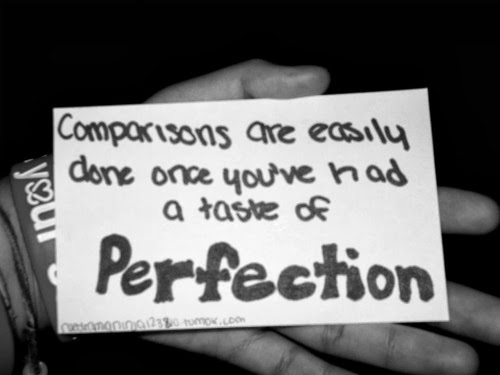 Comparisons are easily
done once you've had
a taste of
Perfection